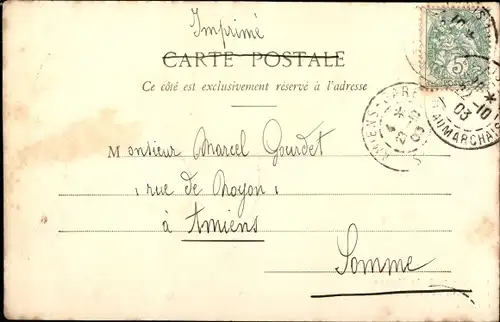 Imprimé
CARTE POSTALE
Ce côté est exclusivement réservé à l'adresse
Monsieur Marcel Gourdet
1 rue de Noyon 1
à Amiens
Somme
5
22-10
03
BEAUMARCHAIS
AMIENS
03